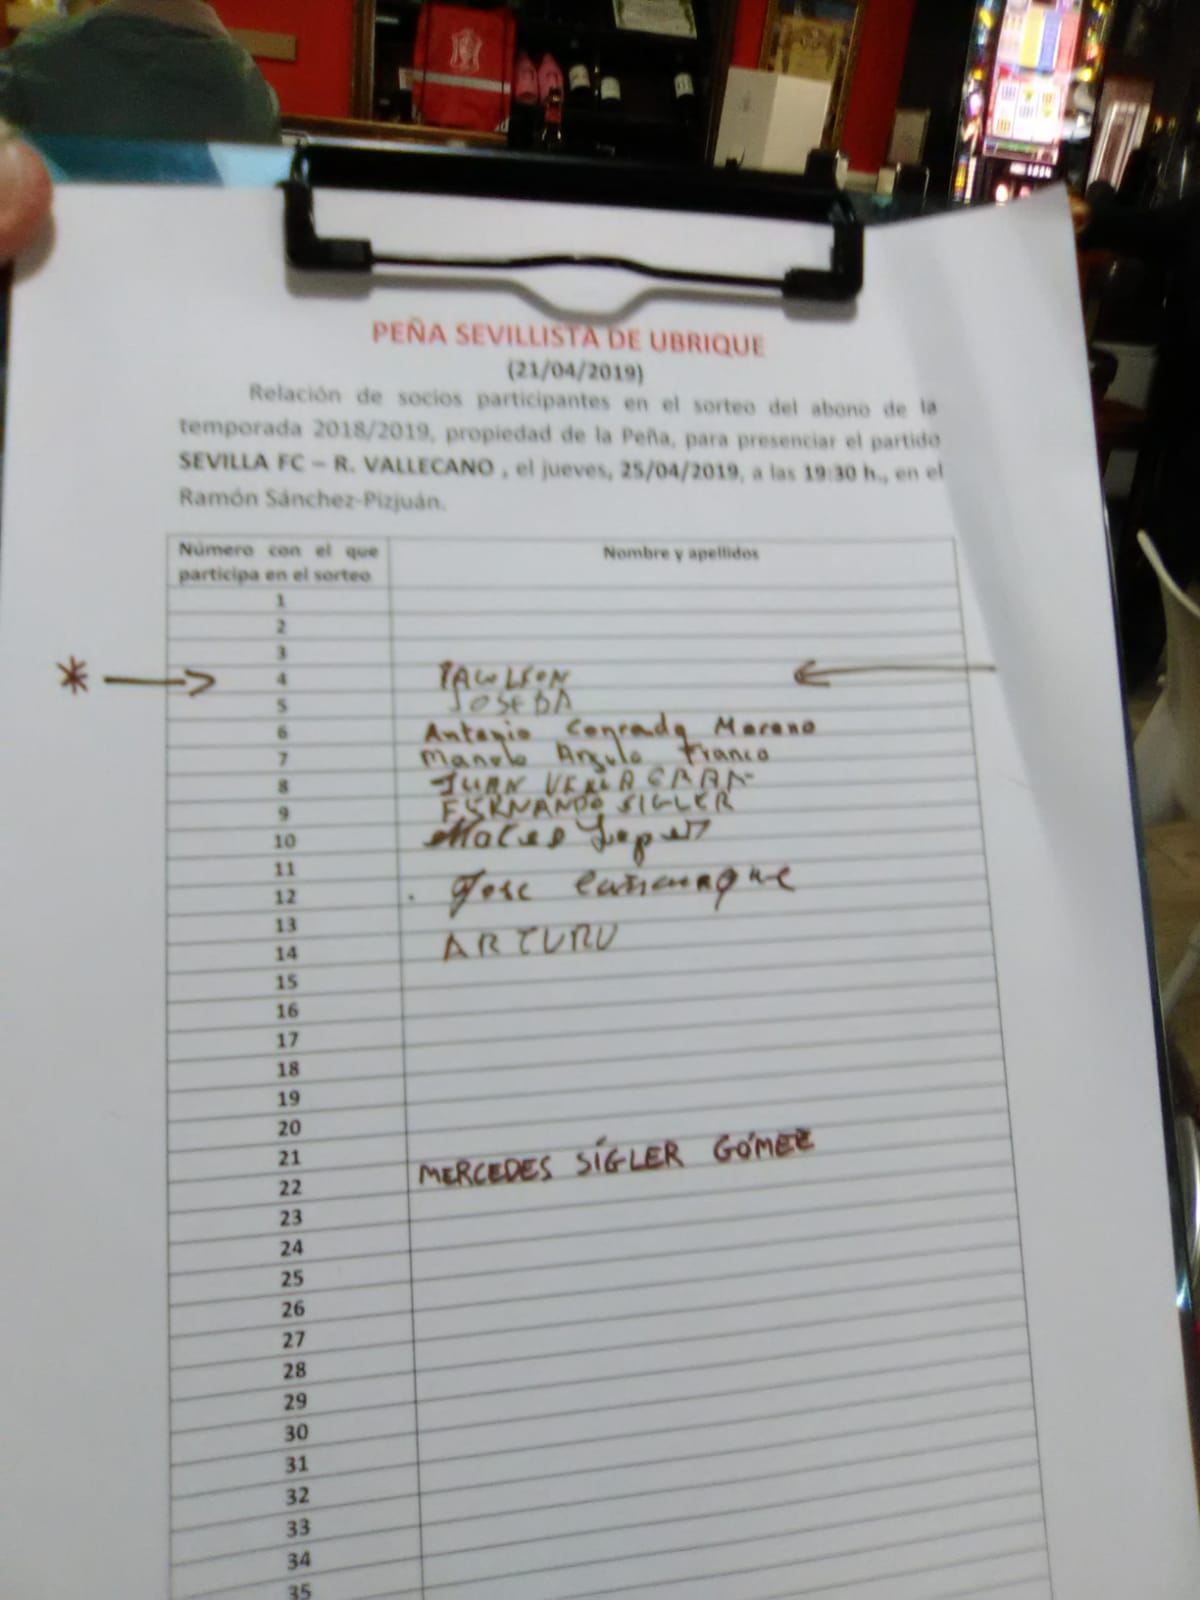 PEÑA SEVILLISTA DE UBRIQUE
(21/04/2019)
Relación de socios participantes en el sorteo del abono de la
temporada 2018/2019, propiedad de la Peña, para presenciar el partido
SEVILLA FC – R. VALLECANO , el jueves, 25/04/2019, a las 19:30 h., en el
Ramón Sánchez-Pizjuán.
Número con el que
participa en el sorteo
Nombre y apellidos
1
2
3
* → 4 ←
5 JOSEBA
6 Antonio Conrado Moreno
7 Manolo Angulo Franco
8 JUAN
9 FERNANDO SIGLER
10 Mateo Lopez
11
12 Jose
13
14 ARTURO
15
16
17
18
19
20
21 MERCEDES SÍGLER GÓMEZ
22
23
24
25
26
27
28
29
30
31
32
33
34
35